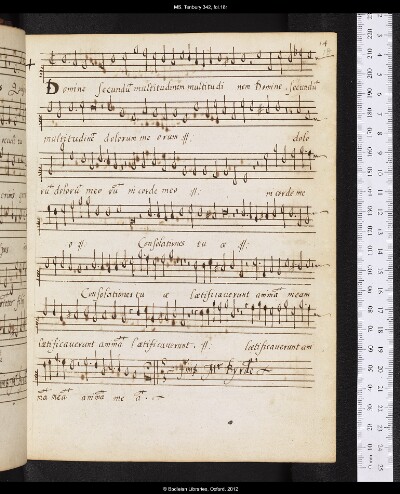 MS. Tenbury 342, fol.18r
14
Domine secundū multitudinem multitudi nem Domine, secundū
multitudinē dolorum me orum :ɉ: dolo
rū dolorū meo rū in corde meo :ɉ: in corde me
o :ɉ: Consolationes tu æ :ɉ:
Consolationes tu æ lætificauerunt animā meam
lætificauerunt animā lætificauerunt :ɉ: lætificauerunt ani
mā meā animā me ā.
Mr Byrde
© Bodleian Libraries, Oxford, 2012